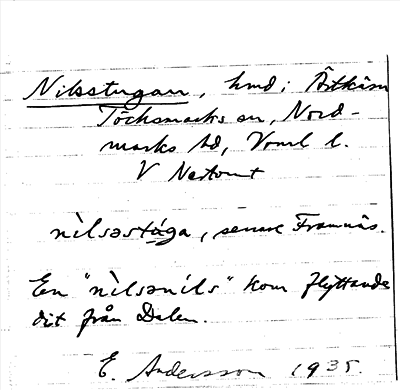 Nilsstugan, hmd i Östkärn
Töcksmarks sn, Nord-
marks hd, Vrml l.
V
nìlsəstúga, senare Framnäs.
En "nìlsənils" kom flyttande
dit från Dalen.
E. Andersson 1935.